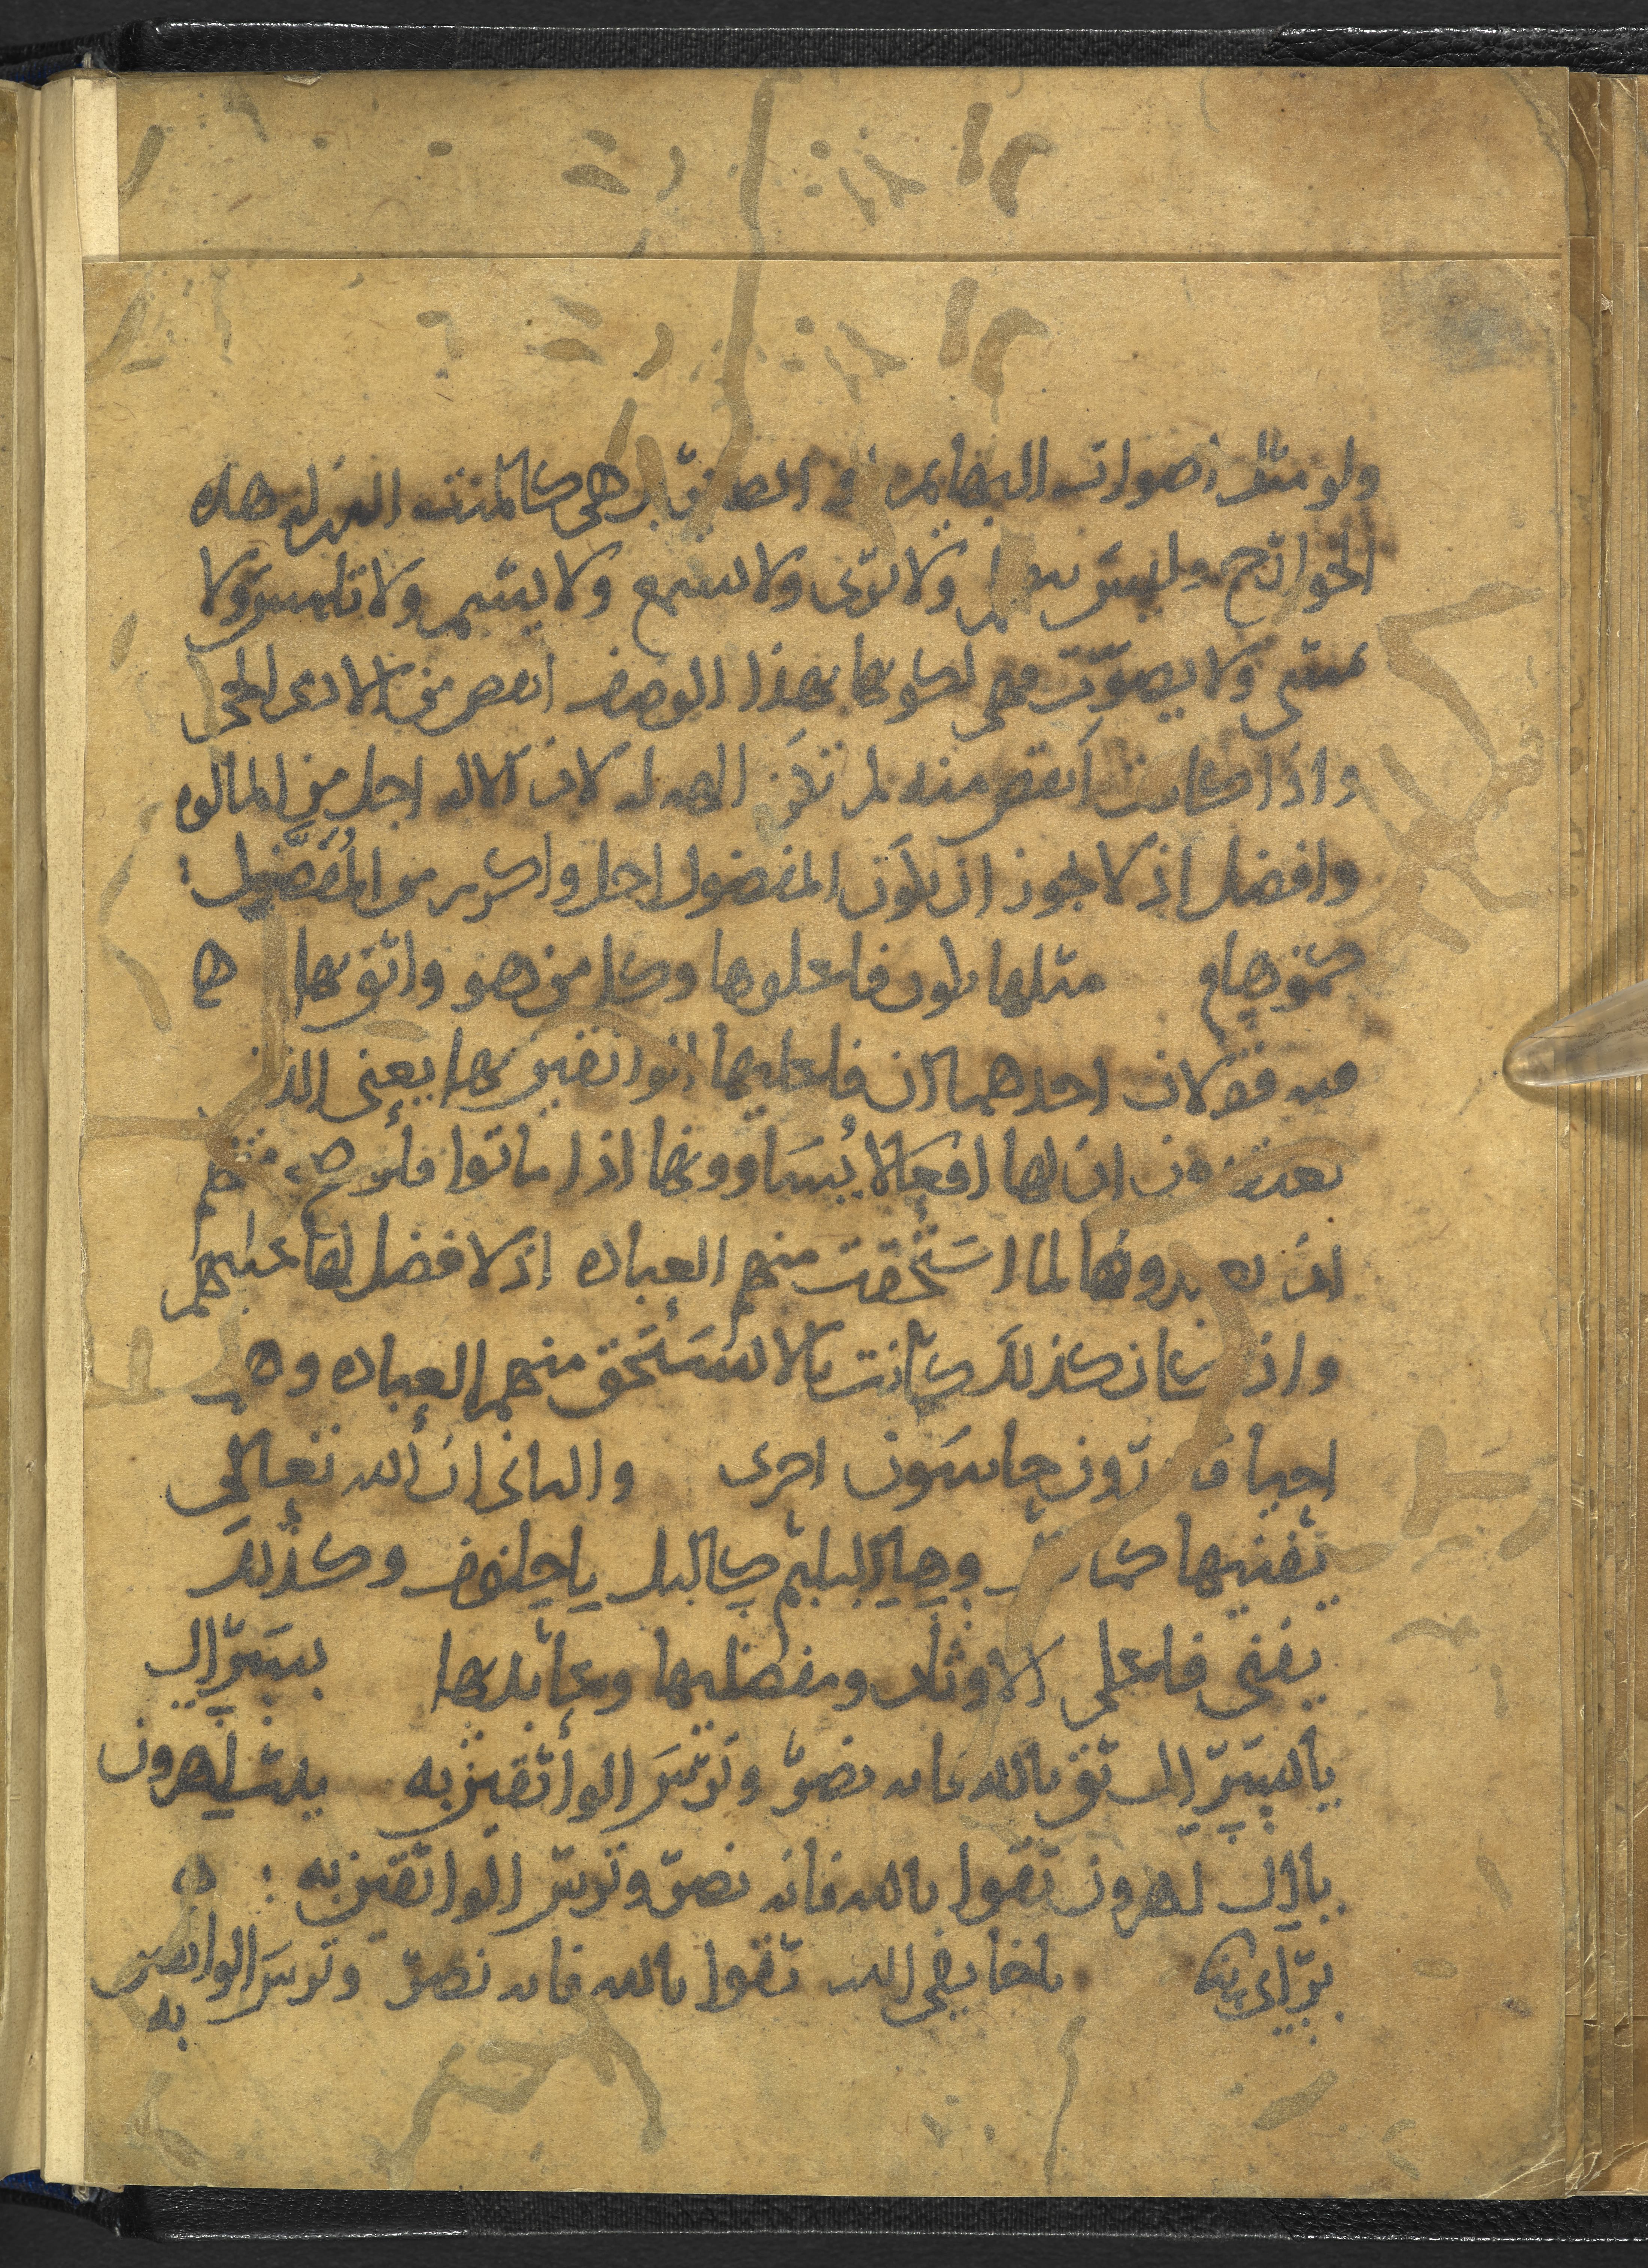 ولو مثل اصوات البهايم في الحلق بل هي كالميت الذي له هذه
الجوارح وليس يتكلم ولا يرى ولا يسمع ولا يشم ولا تلمس ولا
تمشي ولا يصوت فهي لكونها بهذا الوصف انقص من الادمي الحي
واذا كانت انقص منه لم تكن الهه له لان الاله اجل من المالوه
وافضل اذ لا يجوز ان يكون المفضول اجل واكرم من المُفَضَّل :
كموهام مثلها يكون فاعلوها وكل من هو واثق بها
فيه قولان احدهما ان فاعليها الواثقين بها يعني الذين
يعتقدون ان لها افعالا يُسَاوونها اذا ماتوا فلو صح منهم
ان يعبدونها لما استحقت منهم العباده اذ لا فضل لها عليهم
واذ كان كذلك كانت بالا تستحق منهم العباده وهم
احيا قادرون حاسون احرى والثاني ان الله تعالى
يفنيها كما وهاليليم كاليل ياحلوف وكذلك
يفني فاعلي الاوثان ومفضليها وعابديها يسرال
يايسرال ثق بالله فانه نصر وترس الواثقين به بيت اهرون
يا ال اهرون ثقوا بالله فانه نصر وترس الواثقين به :
يراي ياخايفي الله ثقوا بالله فانه نصر وترس الواثقين
به